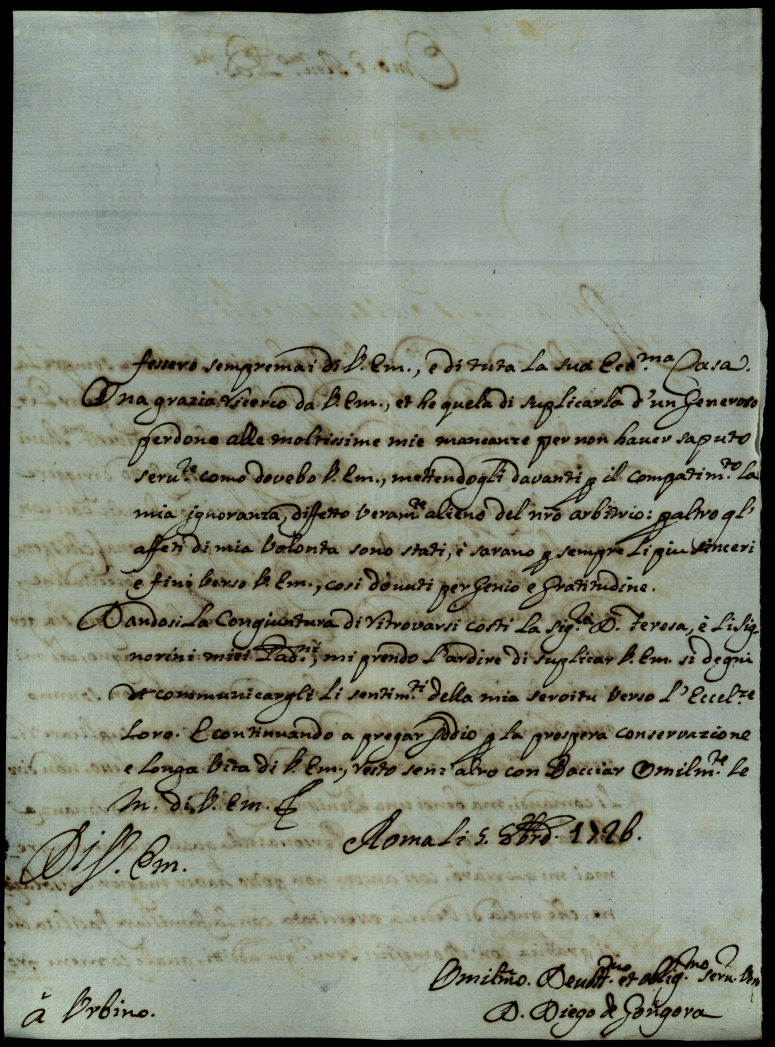 fessero sempremai di V. Em., e di tuta la sua Ecc.ma Casa.
Una grazia ricerco da V. Em., et he quela di suplicarla d'un Generoso
perdono alle moltissime mie mancanze per non haver saputo
serv.re como dovebo V. Em., mettendogli davanti p il compatim.to la
mia ignoranza, diffetto veram.te alieno del nro arbitrio: paltro gl'
affeti di mia volonta sono stati, è sarano p sempre li piu sinceri
e fini verso V. Em., cosi dovuti per Genio e Gratitudine.
Dandosi la Congiuntura di ritrovarsi costi la Sig.ra D. Teresa, è li Sig
norini miei Pad.ni, mi prendo l'ardire di suplicar V. Em. si degni
communicargli li sentim.ti della mia servitu verso l'Eccel.ze
Loro. E continuando a pregar Iddio p la prospera conservazione
e longa Vita di V. Em., resto senz'altro con Bacciar Omilm.te le
M. di V. Em.
Roma li 5. 8bre. 1726.
Di V. Em.
Omilmo. Devott.mo et oblig.mo serv.
à Urbino.
D. Diego de Gongora